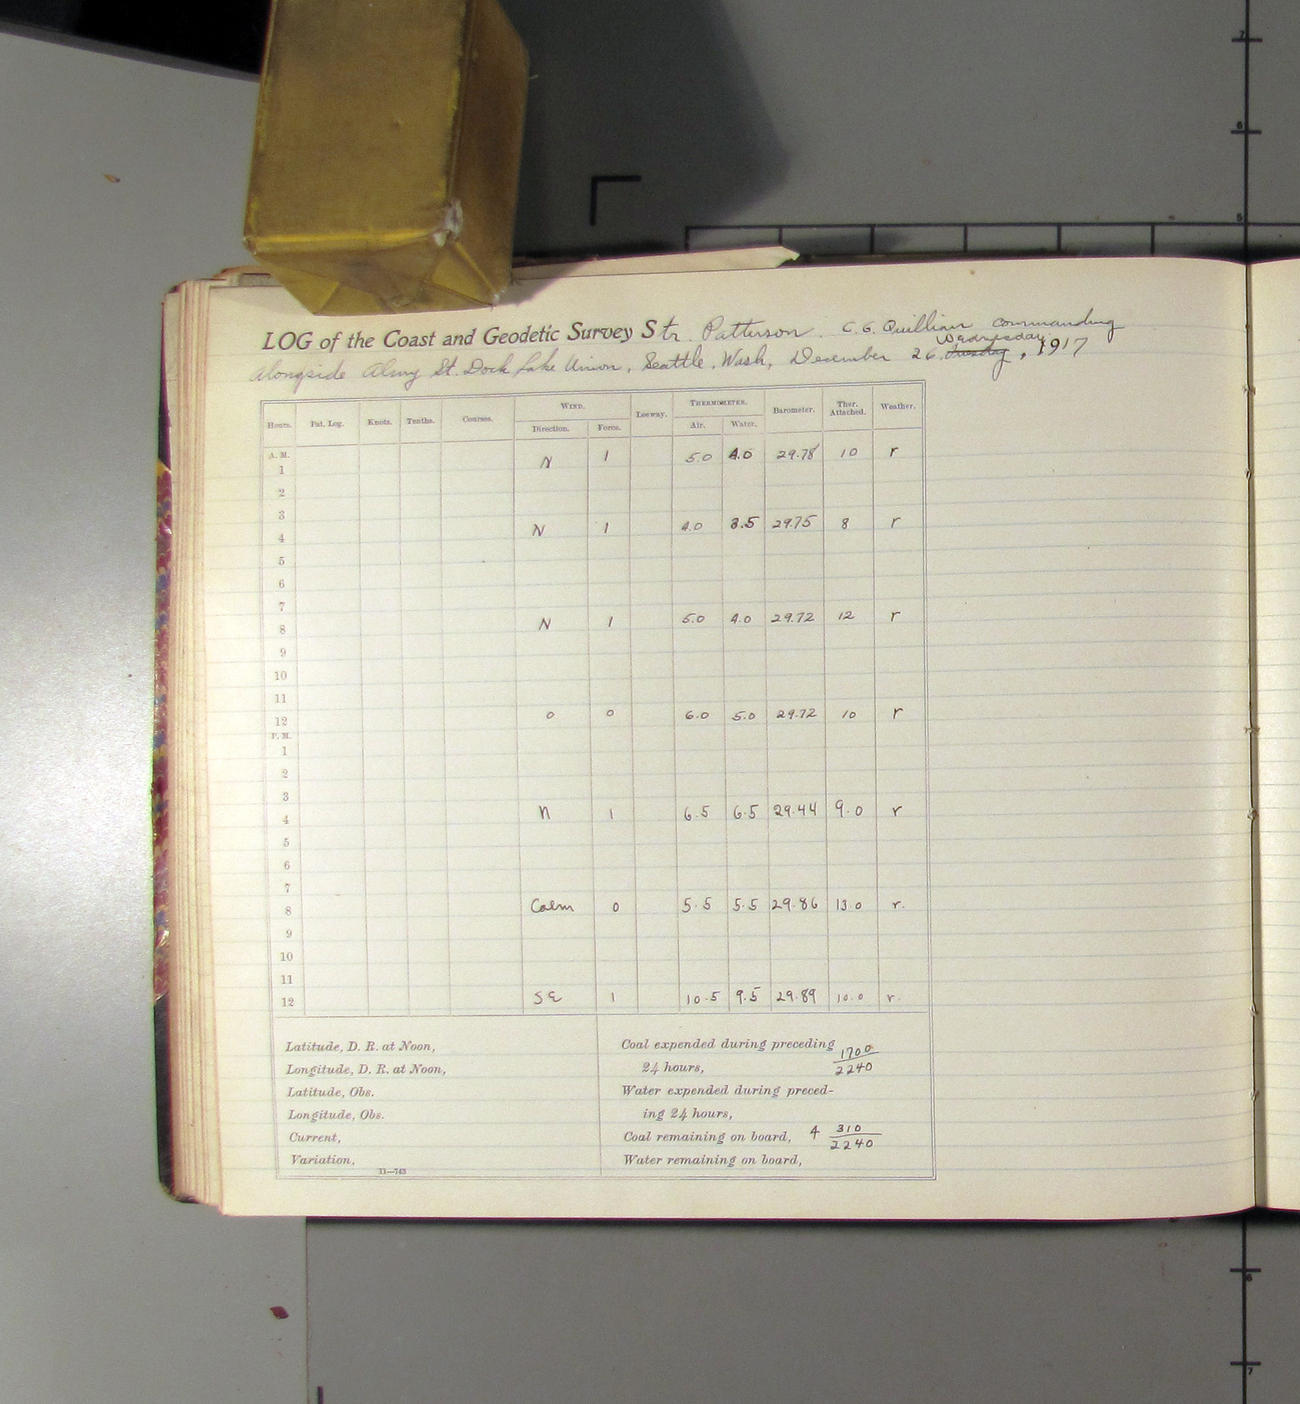 LOG of the Coast and Geodetic Survey Str. Patterson. C. G. Quillian commanding
Wednesday
Alongside Almy St. Dock Lake Union, Seattle, Wash, December 26. Tuesday, 1917
WIND. THERMOMETER.
Hours. Pat. Log. Knots. Tenths. Courses. Direction. Force. Leeway. Air. Water. Barometer. Ther. Attached. Weather.
A. M.
1 N 1 5.0 4.0 29.78 10 r
2
3
4 N 1 4.0 3.5 29.75 8 r
5
6
7
8 N 1 5.0 4.0 29.72 12 r
9
10
11
12 0 0 6.0 5.0 29.72 10 r
P. M.
1
2
3
4 N 1 6.5 6.5 29.44 9.0 r
5
6
7
8 Calm 0 5.5 5.5 29.86 13.0 r.
9
10
11
12 SE 1 10.5 9.5 29.89 10.0 r.
Latitude, D. R. at Noon,
Longitude, D. R. at Noon,
Latitude, Obs.
Longitude, Obs.
Current,
Variation,
11—743
Coal expended during preceding 1700
24 hours, 2240
Water expended during preced-
ing 24 hours,
Coal remaining on board, 4 310
2240
Water remaining on board,
7
6
5
6
7